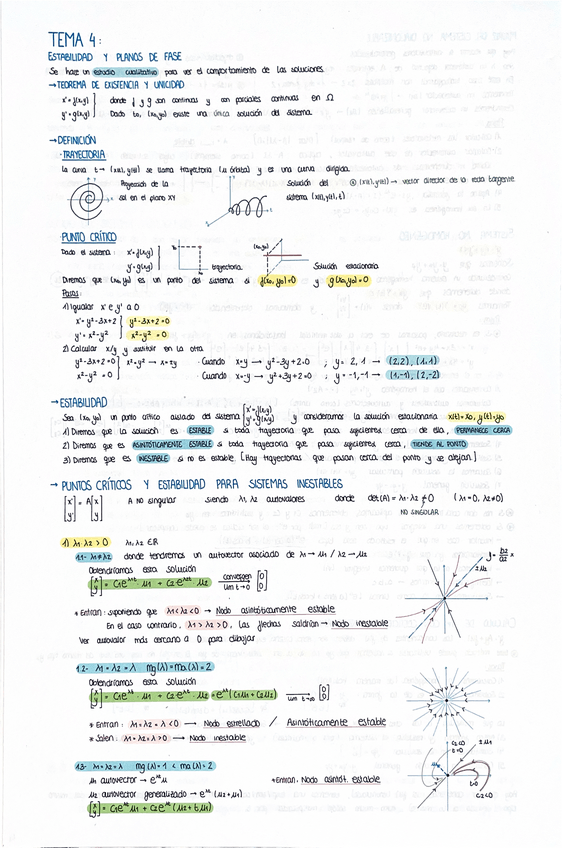 TEMA 4:
ESTABILIDAD Y PLANOS DE FASE
Se hace un estudio cualitativo para ver el comportamiento de las soluciones.
→TEOREMA DE EXISTENCIA Y UNICIDAD
x'= f(x,y) } donde f y g son continuas y con parciales continuas en Ω
y'= g(x,y) } Dado t0, (x0,y0) existe una única solución del sistema.
→DEFINICIÓN
·TRAYECTORIA
La curva t→ (x(t), y(t)) se llama trayectoria (u órbita) y es una curva dirigida.
Proyección de la sol en el plano XY
Solución del sistema (x(t), y(t), t)
(x'(t), y'(t)) → vector director de la recta tangente
·PUNTO CRÍTICO
Dado el sistema: x'= f(x,y)
y'= g(x,y)
trayectoria
(x0,y0)
Solución estacionaria
Diremos que (x0, y0) es un punto del sistema si f(x0, y0)=0 y g(x0, y0)=0
Pasos:
1) Igualar x' e y' a 0
x'= y²-3x+2 } y²-3x+2=0
y'= x²-y² } x²-y² = 0
2) Calcular x/y y sustituir en la otra
y²-3x+2=0 } x²=y² → x=±y
x²-y² = 0
· Cuando x=y → y²-3y+2=0 ; y= 2, 1 → (2,2), (1,1)
· Cuando x=-y → y²+3y+2=0 ; y = -1, -2 → (1,-1), (2,-2)
→ESTABILIDAD
Sea (x0, y0) un punto crítico aislado del sistema [x'=f(x,y) y'=g(x,y) y consideramos la solución estacionaria x(t)=x0, y(t)=y0
1) Diremos que la solución es ESTABLE si toda trayectoria que pasa suficientes cerca de ella, PERMANECE CERCA
2) Diremos que es ASINTÓTICAMENTE ESTABLE si toda trayectoria que pasa suficientes cerca, TIENDE AL PUNTO
3) Diremos que es INESTABLE si no es estable. [Hay trayectorias que pasan cerca del punto y se alejan]
→ PUNTOS CRÍTICOS Y ESTABILIDAD PARA SISTEMAS INESTABLES
[x' y'] = A[x y] A no singular siendo λ1, λ2 autovalores donde det(A) = λ1·λ2 ≠ 0 (λ1≠0, λ2≠0)
NO SINGULAR
1) λ1·λ2 > 0 λ1, λ2 ∈ R
1.1- λ1≠λ2 donde tendremos un autovector asociado de λ1→ μ1 / λ2 → μ2
Obtendríamos esta solución
[x y] = C1e^λ1t · μ1 + C2e^λ2t · μ2 convergen lim t→∞ [0 0]
* Entran: suponiendo que λ1<λ2<0 → Nodo asintóticamente estable
En el caso contrario, λ1>λ2>0, las flechas saldrían → Nodo inestable
Ver autovalor más cercano a 0 para dibujar
1.2- λ1=λ2=λ mg(λ)=ma(λ)=2
Obtendríamos esta solución
[x y] = C1e^λt · μ1 + C2e^λt · μ2 = e^λt (C1μ1+C2μ2) lim t→∞ [0 0]
* Entran: λ1=λ2=λ<0 → Nodo estrellado / Asintóticamente estable
* Salen: λ1=λ2=λ>0 → Nodo inestable
1.3- λ1=λ2=λ mg(λ)=1 < ma(λ)=2
μ1 autovector → e^λt μ1
* Entran: Nodo asintót. estable
μ2 autovector generalizado → e^λt (μ2+tμ1)
[x y] = C1e^λt μ1 + C2e^λt (μ2+tμ1)